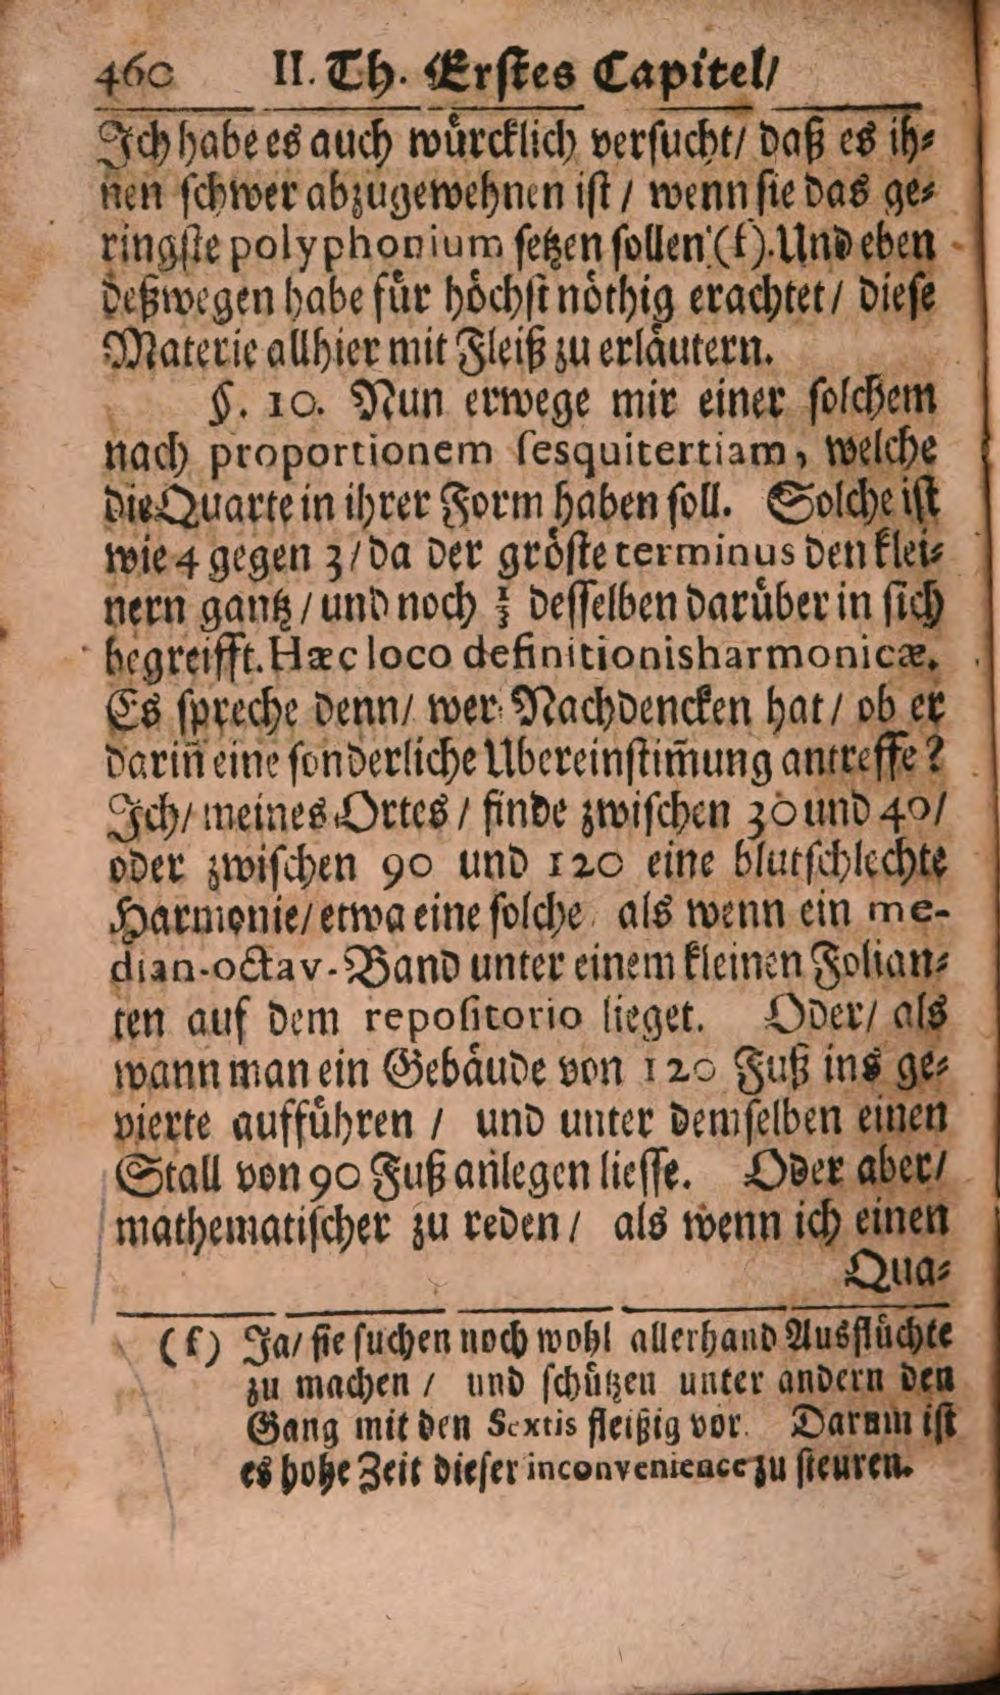 460 II. Th. Erstes Capitel/
Ich habe es auch wuͤrcklich versucht/ daß es ih⸗
nen schwer abzugewehnen ist / wenn sie das ge⸗
ringste polyphonium setzen sollen (f). Und eben
deßwegen habe fuͤr hoͤchst noͤthig erachtet/ diese
Materie allhier mit Fleiß zu erlaͤutern.
§. 10. Nun erwege mir einer solchem
nach proportionem sesquitertiam, welche
die Quarte in ihrer Form haben soll. Solche ist
wie 4 gegen 3/ da der groͤste terminus den klei⸗
nern gantz / und noch ⅓ desselben daruͤber in sich
begreifft. Hæc loco definitionis harmonicæ.
Es spreche denn/ wer Nachdencken hat / ob er
darin̄ eine sonderliche Ubereinstim̄ung antreffe?
Ich/ meines Ortes / finde zwischen 30 und 40/
oder zwischen 90 und 120 eine blutschlechte
Harmonie/ etwa eine solche als wenn ein me-
dian-octav-Band unter einem kleinen Folian⸗
ten auf dem repositorio lieget. Oder/ als
wann man ein Gebaͤude von 120 Fuß ins ge⸗
vierte auffuͤhren / und unter demselben einen
Stall von 90 Fuß anlegen liesse. Oder aber/
mathematischer zu reden / als wenn ich einen
Qua⸗
(f) Ja/ sie suchen noch wohl allerhand Ausfluͤchte
zu machen / und schuͤtzen unter andern den
Gang mit den Sextis fleißig vor. Darum ist
es hohe Zeit dieser inconvenience zu steuren.